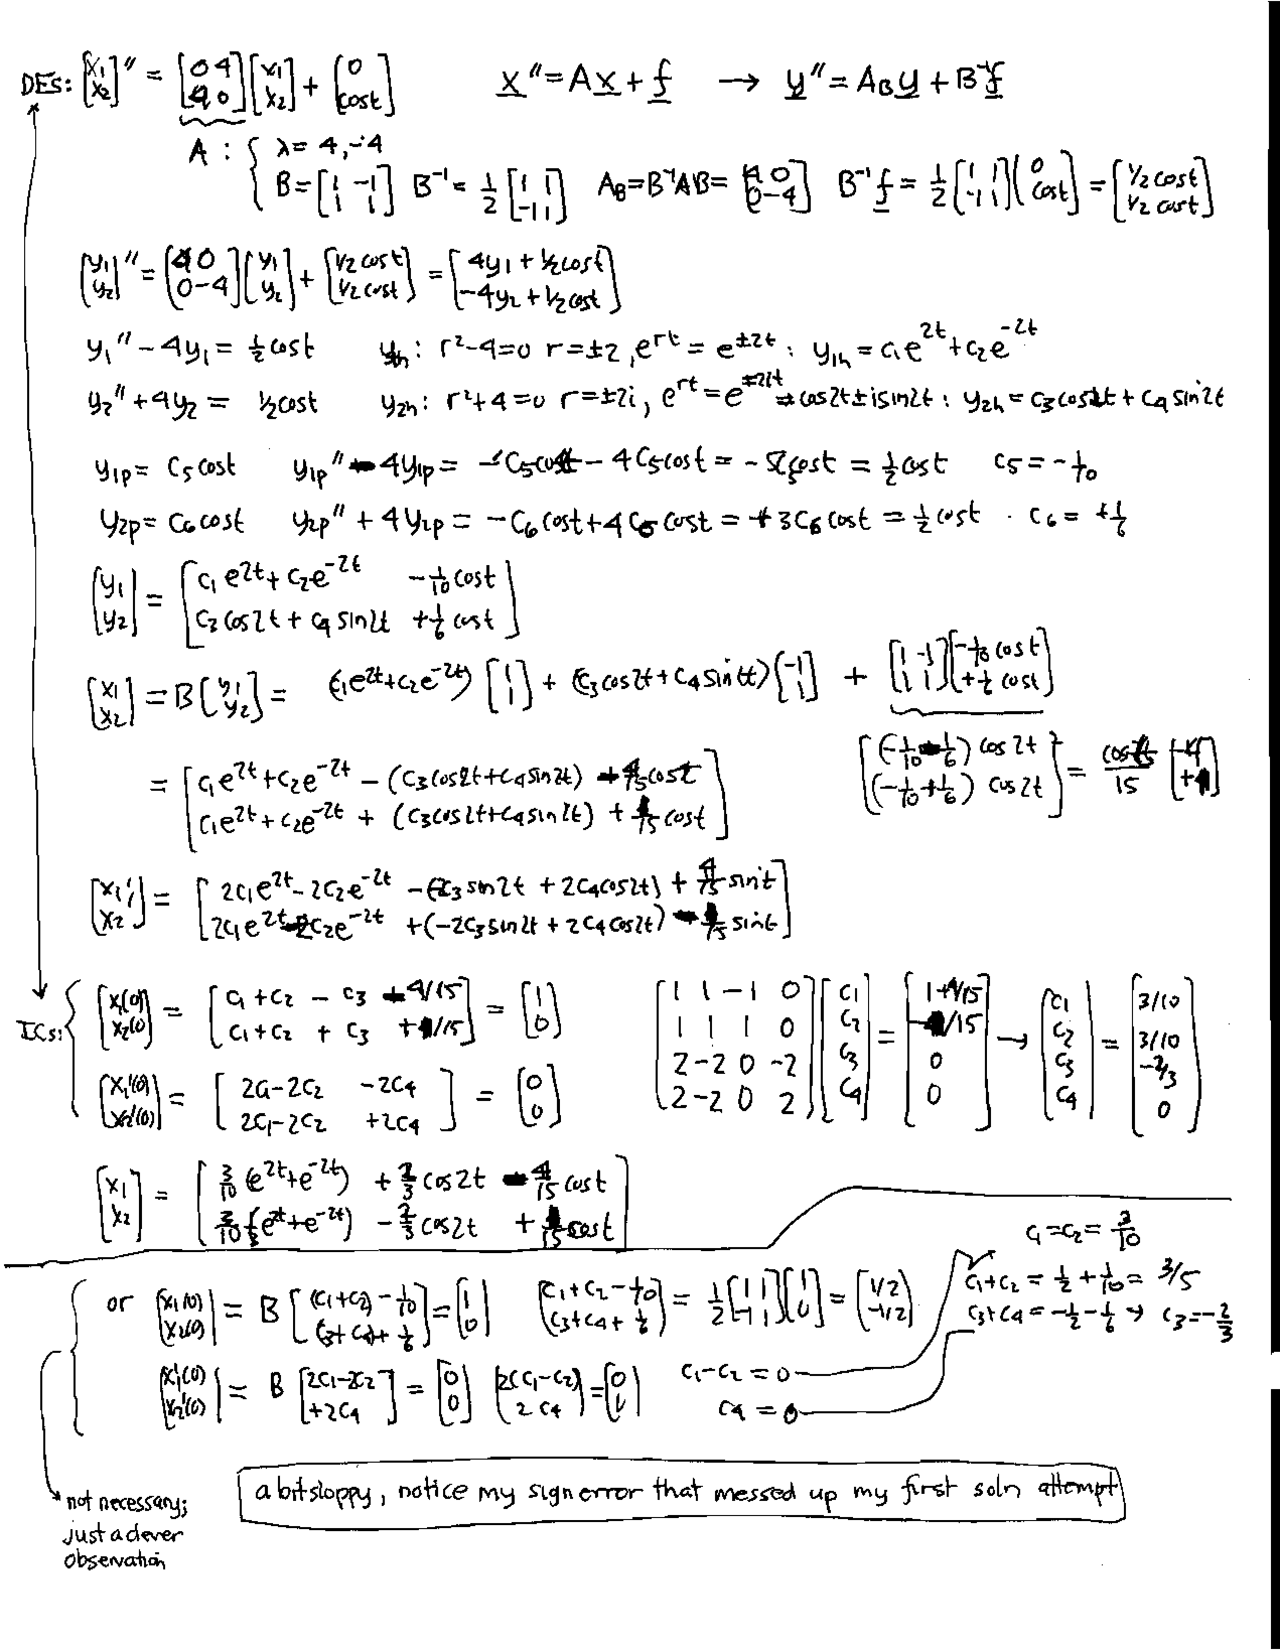 DES: [x₁ x₂]'' = [0 4; 4 0][x₁ x₂] + [0 cost]   x'' = Ax + f → y'' = A_B y + B⁻¹f
A : { λ = 4, -4
B = [1 -1; 1 1]  B⁻¹ = 1/2 [1 1; -1 1]  A_B = B⁻¹AB = [4 0; 0 -4]  B⁻¹f = 1/2 [1 1; -1 1][0 cost] = [1/2 cost 1/2 cost]
[y₁ y₂]'' = [4 0; 0 -4][y₁ y₂] + [1/2 cost 1/2 cost] = [4y₁ + 1/2 cost; -4y₂ + 1/2 cost]
y₁'' - 4y₁ = 1/2 cost   y₁h: r²-4=0 r=±2, e^rt = e^±2t : y₁h = c₁e^2t + c₂e^-2t
y₂'' + 4y₂ = 1/2 cost   y₂h: r²+4=0 r=±2i, e^rt = e^±2it = cos2t ± i sin2t : y₂h = c₃cos2t + c₄sin2t
y₁p = c₅cost   y₁p'' - 4y₁p = -c₅cost - 4c₅cost = -5c₅cost = 1/2 cost   c₅ = -1/10
y₂p = c₆cost   y₂p'' + 4y₂p = -c₆cost + 4c₆cost = +3c₆cost = 1/2 cost . c₆ = +1/6
[y₁ y₂] = [c₁e^2t + c₂e^-2t - 1/10 cost; c₃cos2t + c₄sin2t + 1/6 cost]
[x₁ x₂] = B[y₁ y₂] = (c₁e^2t + c₂e^-2t)[1 1] + (c₃cos2t + c₄sin2t)[-1 1] + [1 -1; 1 1][-1/10 cost; +1/6 cost]
[(-1/10 - 1/6) cos2t; (-1/10 + 1/6) cos2t] = cost/15 [-4 +1]
= [c₁e^2t + c₂e^-2t - (c₃cos2t + c₄sin2t) - 4/15 cost; c₁e^2t + c₂e^-2t + (c₃cos2t + c₄sin2t) + 1/15 cost]
[x₁' x₂'] = [2c₁e^2t - 2c₂e^-2t - (-2c₃sin2t + 2c₄cos2t) + 4/15 sint; 2c₁e^2t - 2c₂e^-2t + (-2c₃sin2t + 2c₄cos2t) - 1/15 sint]
ICs: { [x₁(0) x₂(0)] = [c₁+c₂ - c₃ - 4/15; c₁+c₂ + c₃ + 1/15] = [1 0]   [1 1 -1 0; 1 1 1 0; 2 -2 0 -2; 2 -2 0 2][c₁ c₂ c₃ c₄] = [1+4/15; -1/15; 0; 0] → [c₁ c₂ c₃ c₄] = [3/10; 3/10; -2/3; 0]
[x₁'(0) x₂'(0)] = [2c₁-2c₂ -2c₄; 2c₁-2c₂ +2c₄] = [0 0]
[x₁ x₂] = [3/10 (e^2t + e^-2t) + 2/3 cos2t - 4/15 cost; 3/10 (e^2t + e^-2t) - 2/3 cos2t + 1/15 cost]
c₁=c₂= 3/10
or [x₁(0) x₂(0)] = B[(c₁+c₂) - 1/10; (c₃+c₄) + 1/6] = [1 0]   [c₁+c₂ - 1/10; c₃+c₄ + 1/6] = 1/2 [1 1; -1 1][1 0] = [1/2 -1/2]
c₁+c₂ = 1/2 + 1/10 = 3/5
c₃+c₄ = -1/2 - 1/6 → c₃ = -2/3
[x₁'(0) x₂'(0)] = B[2c₁-2c₂; +2c₄] = [0 0]   [2(c₁-c₂); 2c₄] = [0 0]   c₁-c₂ = 0
c₄ = 0
a bit sloppy, notice my sign error that messed up my first soln attempt
not necessary;
just a clever
observation